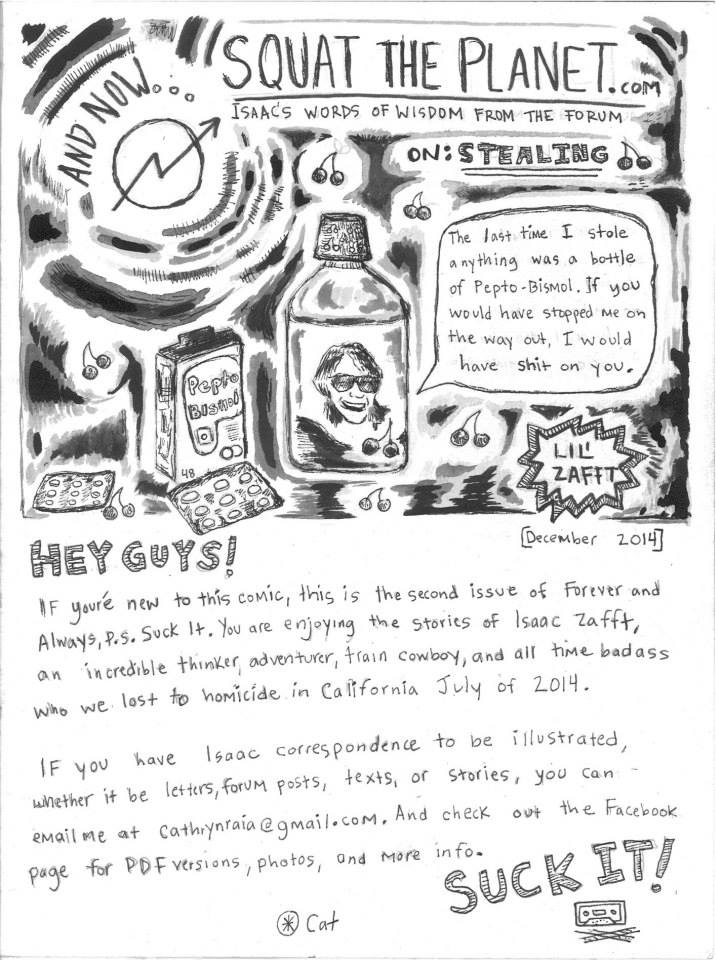 AND NOW...
SQUAT THE PLANET.COM
ISAAC'S WORDS OF WISDOM FROM THE FORUM
ON: STEALING
The last time I stole
anything was a bottle
of Pepto-Bismol. If you
would have stopped me on
the way out, I would
have shit on you.
Pepto
Bismol
48
LIL'
ZAFFT
[December 2014]
HEY GUYS!
IF you're new to this comic, this is the second issue of Forever and
Always, P.S. Suck It. You are enjoying the stories of Isaac Zafft,
an incredible thinker, adventurer, train cowboy, and all time badass
who we lost to homicide in California July of 2014.
IF you have Isaac correspondence to be illustrated,
whether it be letters, forum posts, texts, or stories, you can
email me at cathrynraia@gmail.com. And check out the Facebook
page for PDF versions, photos, and more info.
SUCK IT!
Cat